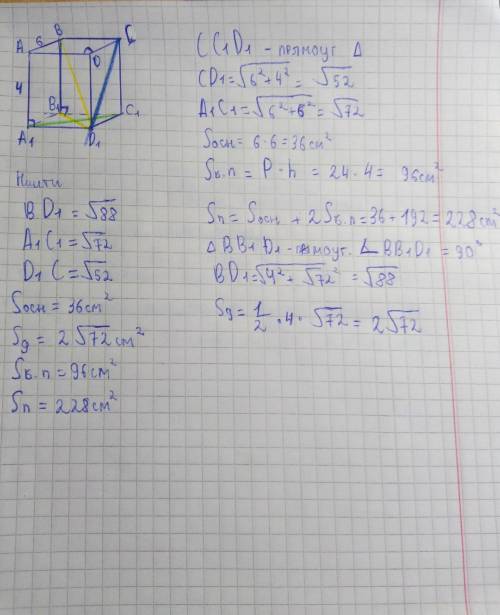 A 6 B C
D
4
B1 C1
A1 D1
Найти
B D1 = √88
A1C1 = √72
D1 C = √52
Sосн = 36см²
Sд = 2√72 см²
Sб.п = 96см²
Sп = 228см²
CC1D1 - прямоуг. Δ
CD1 = √6²+4² = √52
A1C1 = √6²+6² = √72
Sосн = 6·6 = 36см²
Sб.п = P·h = 24·4 = 96см²
Sп = Sосн + 2Sб.п = 36 + 192 = 228см²
ΔBB1D1 - прямоуг. ∠BB1D1 = 90°
BD1 = √4² + √72² = √88
Sд = 1/2 · 4 · √72 = 2√72